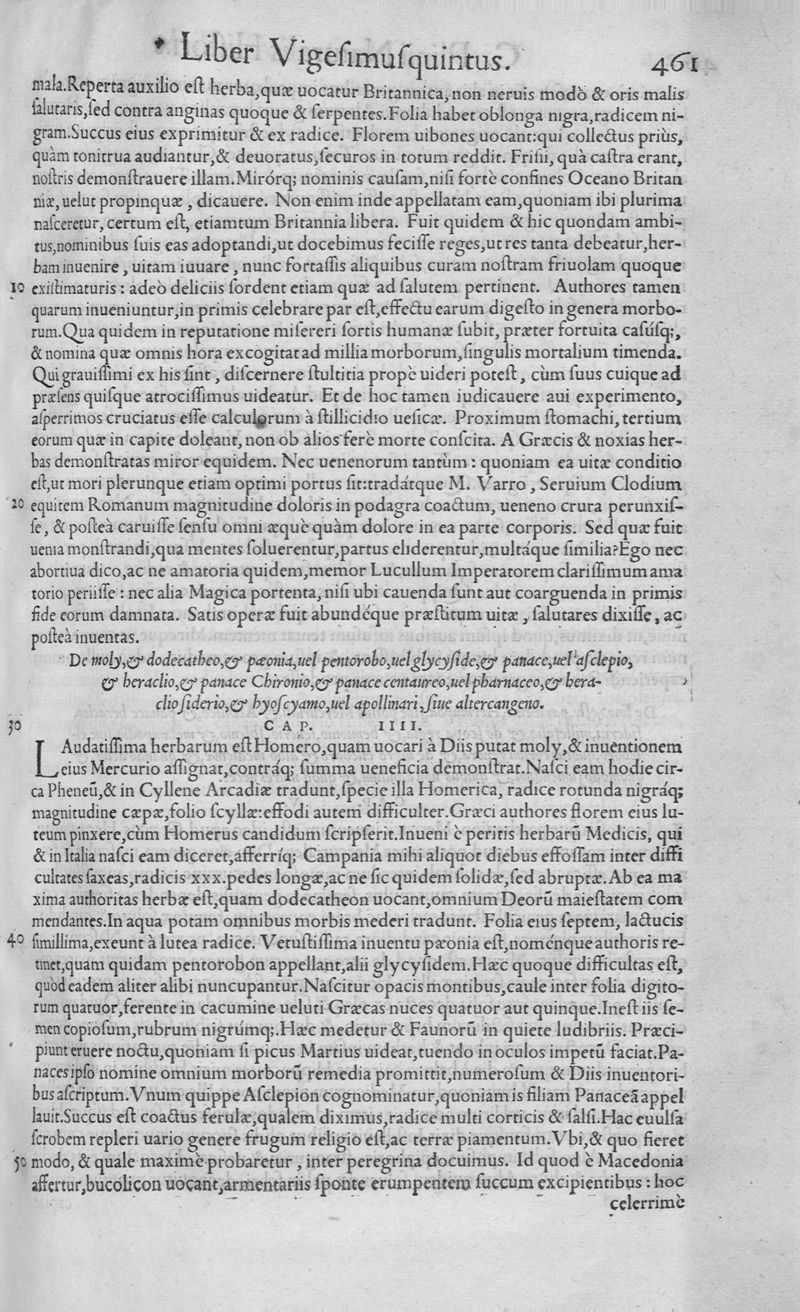 * Liber Vigeſimuſquintus. 461
mala.Reperta auxilio eſt herba,quæ uocatur Britannica,non neruis modò & oris malis
ſalutaris,ſed contra anginas quoque & ſerpentes.Folia habet oblonga nigra,radicem ni-
gram.Succus eius exprimitur & ex radice. Florem uibones uocant:qui collectus priùs,
quàm tonitrua audiantur,& deuoratus,ſecuros in totum reddit. Friſii, quà caſtra erant,
noſtris demonſtrauere illam.Mirórq; nominis cauſam,niſi fortè confines Oceano Britan
niæ,uelut propinquæ , dicauere. Non enim inde appellatam eam,quoniam ibi plurima
naſceretur, certum eſt, etiamtum Britannia libera. Fuit quidem & hic quondam ambi-
tus,nominibus ſuis eas adoptandi,ut docebimus feciſſe reges,ut res tanta debeatur,her-
bam inuenire , uitam iuuare , nunc fortaſſis aliquibus curam noſtram friuolam quoque
10 exiſtimaturis : adeò deliciis ſordent etiam quæ ad ſalutem pertinent. Authores tamen
quarum inueniuntur,in primis celebrare par eſt,effectu earum digeſto in genera morbo-
rum.Qua quidem in reputatione miſereri ſortis humanæ ſubit, præter fortuita caſúſq;,
& nomina quæ omnis hora excogitat ad millia morborum,ſingulis mortalium timenda.
Qui grauiſſimi ex his ſint , diſcernere ſtultitia propè uideri poteſt , cùm ſuus cuique ad
præſens quiſque atrociſſimus uideatur. Et de hoc tamen iudicauere aui experimento,
aſperrimos cruciatus eſſe calculorum à ſtillicidio ueſicæ. Proximum ſtomachi, tertium
eorum quæ in capite doleant, non ob alios ferè morte conſcita. A Græcis & noxias her-
bas demonſtratas miror equidem. Nec uenenorum tantùm : quoniam ea uitæ conditio
eſt,ut mori plerunque etiam optimi portus ſit:tradátque M. Varro , Seruium Clodium
20 equitem Romanum magnitudine doloris in podagra coactum, ueneno crura perunxiſ-
ſe, & poſteà caruiſſe ſenſu omni æquè quàm dolore in ea parte corporis. Sed quæ fuit
uenia monſtrandi,qua mentes ſoluerentur,partus eliderentur,multáque ſimilia?Ego nec
abortiua dico,ac ne amatoria quidem,memor Lucullum Imperatorem clariſſimum ama
torio periiſſe : nec alia Magica portenta, niſi ubi cauenda ſunt aut coarguenda in primis
fide eorum damnata. Satis operæ fuit abundéque præſtitum uitæ , ſalutares dixiſſe, ac
poſteà inuentas.
De moly,& dodecatheo,& pæonia,uel pentorobo,uel glycyſide,& panace,uel aſclepio,
& heraclio,& panace Chironio,& panace centaureo,uel pharnaceo,& hera-
clio ſiderio,& hyoſcyamo,uel apollinari,ſiue altercangeno.
30 CAP. IIII.
LAudatiſſima herbarum eſt Homero,quam uocari à Diis putat moly,& inuentionem
eius Mercurio aſſignat,contráq; ſumma ueneficia demonſtrat.Naſci eam hodie cir-
ca Pheneũ,& in Cyllene Arcadiæ tradunt,ſpecie illa Homerica, radice rotunda nigráq;
magnitudine cæpæ,folio ſcyllæ:effodi autem difficulter.Græci authores florem eius lu-
teum pinxere,cùm Homerus candidum ſcripſerit.Inueni è peritis herbarũ Medicis, qui
& in Italia naſci eam diceret,afferríq; Campania mihi aliquot diebus effoſſam inter diffi
cultates ſaxeas,radicis xxx.pedes longæ,ac ne ſic quidem ſolidæ,ſed abruptæ.Ab ea ma
xima authoritas herbæ eſt,quam dodecatheon uocant,omnium Deorũ maieſtatem com
mendantes.In aqua potam omnibus morbis mederi tradunt. Folia eius ſeptem, lactucis
40 ſimillima,exeunt à lutea radice. Vetuſtiſſima inuentu pæonia eſt,noménque authoris re-
tinet,quam quidam pentorobon appellant,alii glycyſidem.Hæc quoque difficultas eſt,
quòd eadem aliter alibi nuncupantur.Naſcitur opacis montibus,caule inter folia digito-
rum quatuor,ferente in cacumine ueluti Græcas nuces quatuor aut quinque.Ineſt iis ſe-
men copioſum,rubrum nigrúmq;.Hæc medetur & Faunorũ in quiete ludibriis. Præci-
piunt eruere noctu,quoniam ſi picus Martius uideat,tuendo in oculos impetũ faciat.Pa-
naces ipſo nomine omnium morborũ remedia promittit,numeroſum & Diis inuentori-
bus aſcriptum.Vnum quippe Aſclepion cognominatur,quoniam is filiam Panaceã appel
lauit.Succus eſt coactus ferulæ,qualem diximus,radice multi corticis & ſalſi.Hac euulſa
ſcrobem repleri uario genere frugum religio eſt,ac terræ piamentum.Vbi,& quo fieret
50 modo, & quale maximè probaretur , inter peregrina docuimus. Id quod è Macedonia
affertur,bucolicon uocant,armentariis ſponte erumpentem ſuccum excipientibus : hoc
celerrimè